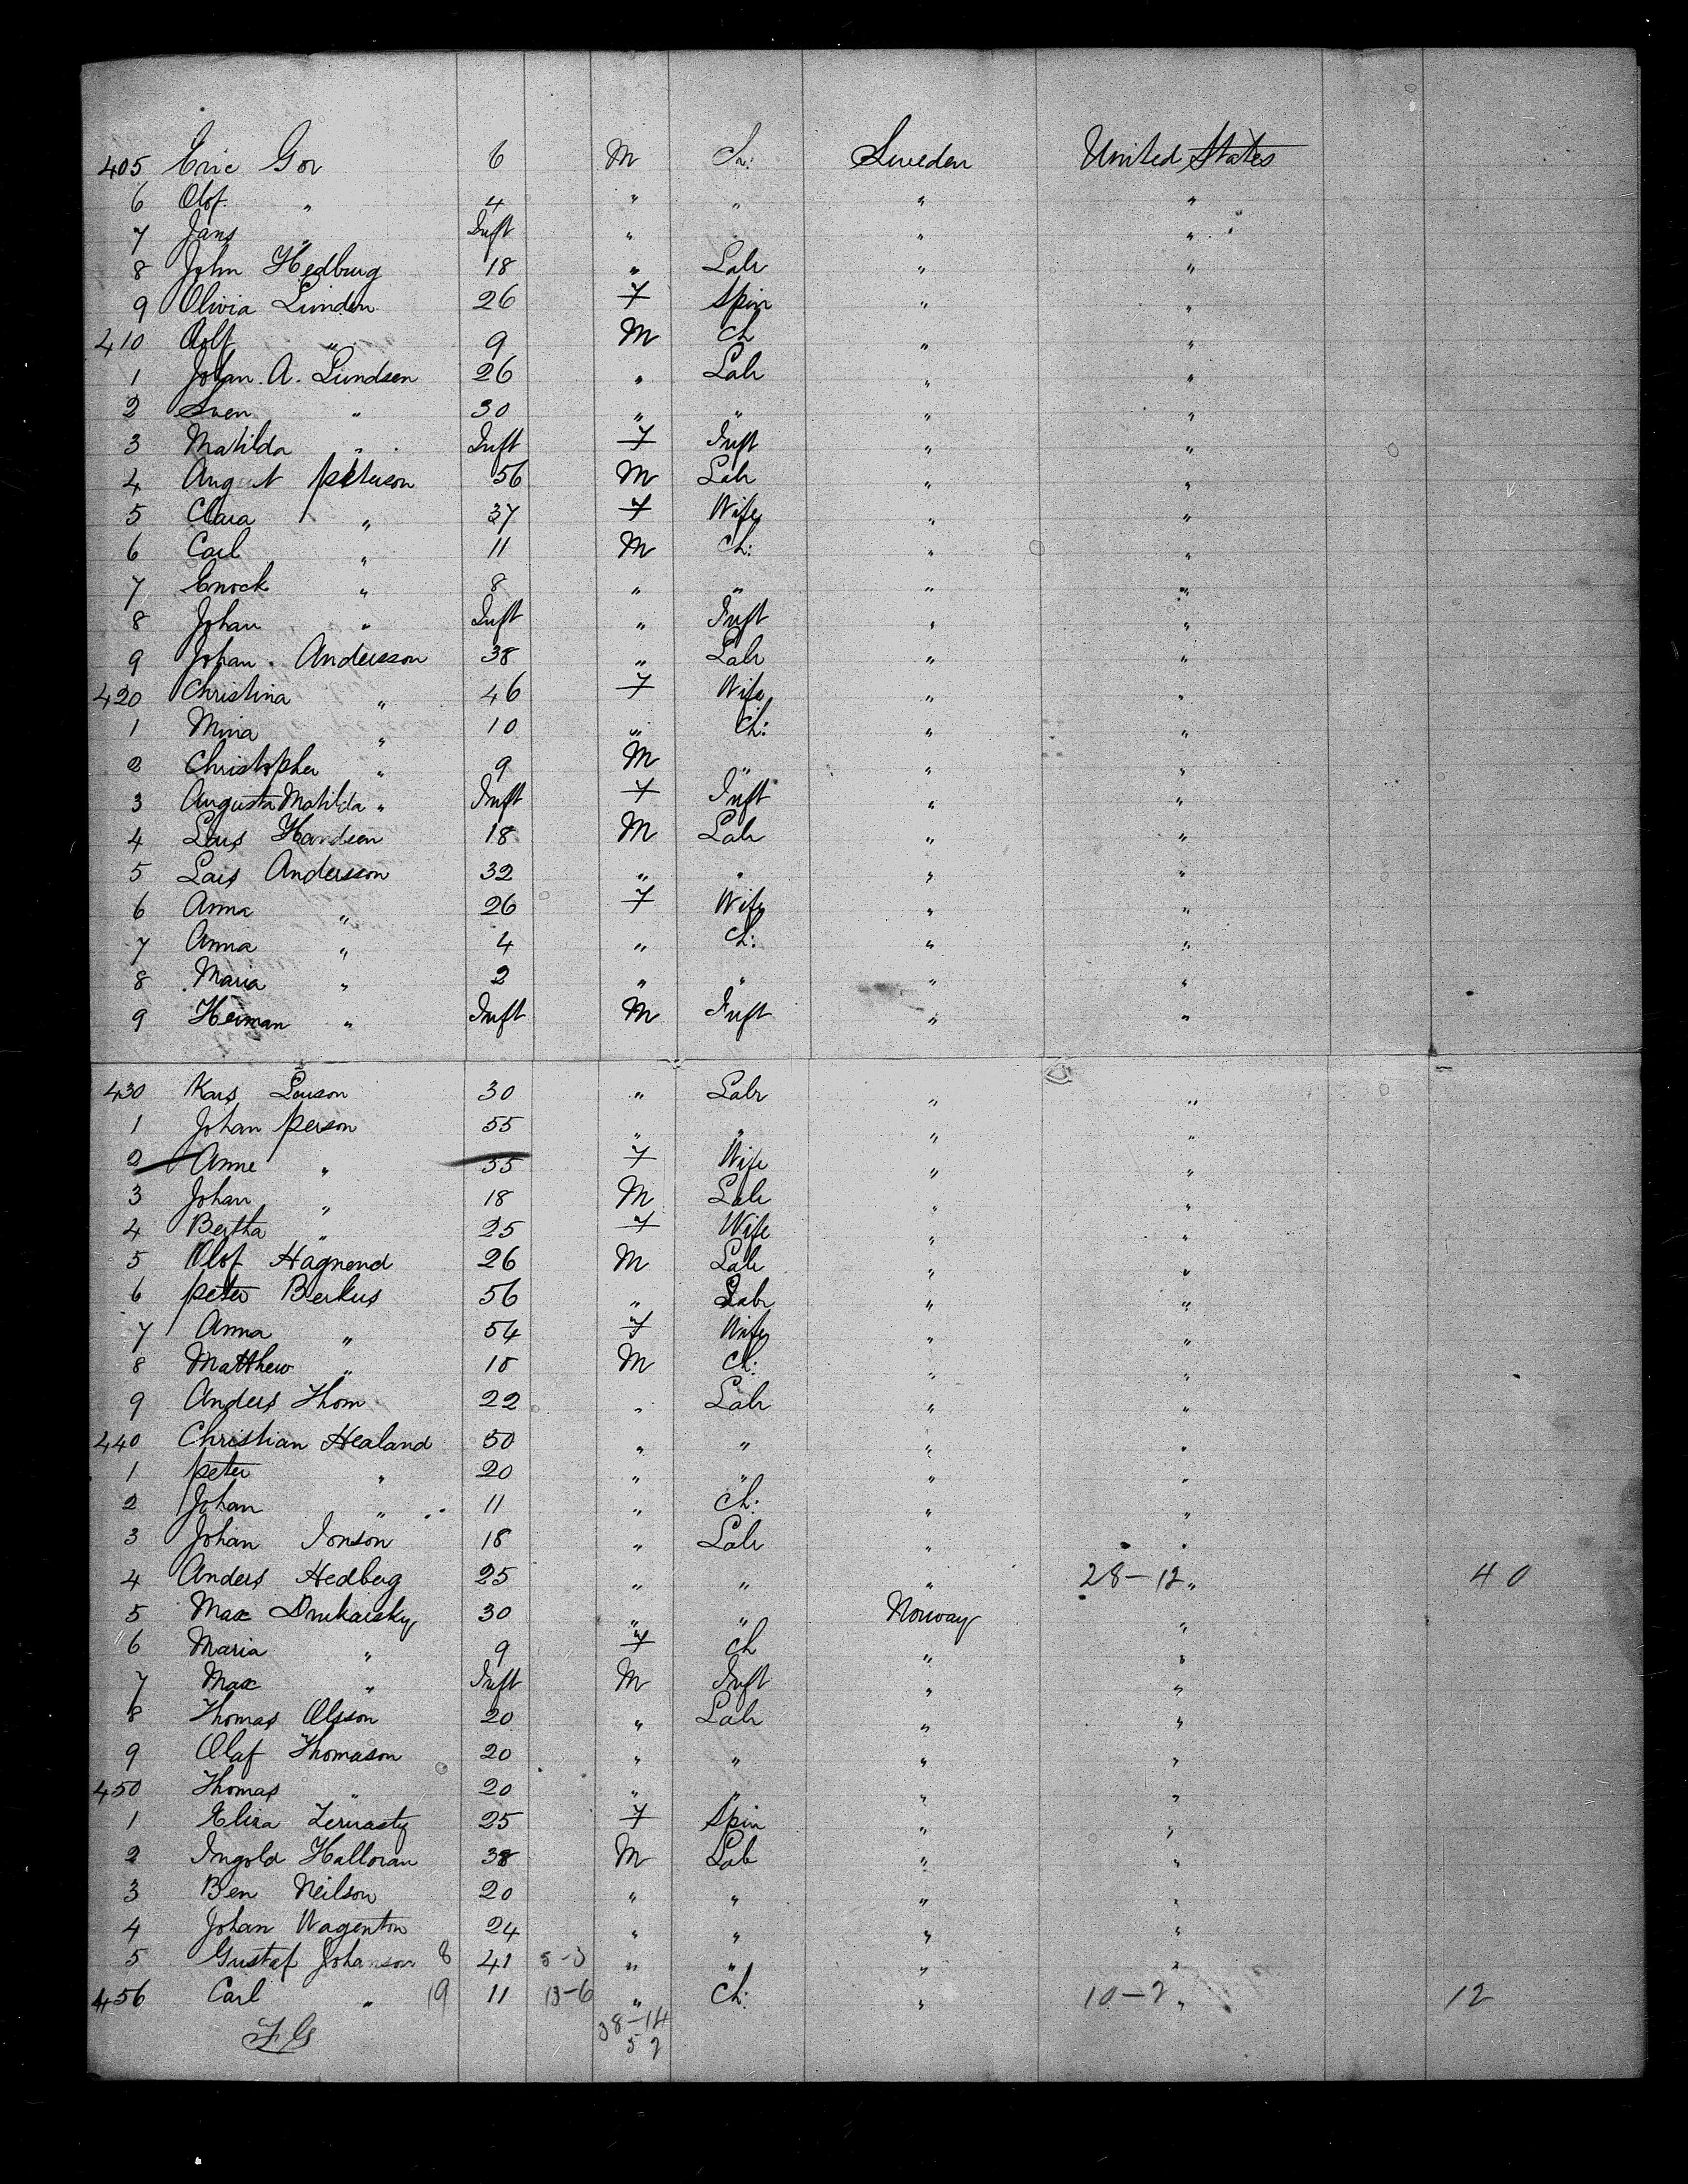 405 Eric Gor 6 M Ch: Sweden United States
6 Olof " 4 " " " "
7 Jans " Inft " " " "
8 John Hedburg 18 " Labr " "
9 Olivia Linden 26 F Spin " "
410 Aolf " 9 M Ch " "
1 Johan. A. Lundsen 26 " Labr " "
2 Sven " 30 " " " "
3 Matilda " Inft F Inft " "
4 August Peterson 56 M Labr " "
5 Clara " 37 F Wife " "
6 Carl " 11 M Ch: " "
7 Enock " 8 " " " "
8 Johan " Inft " Inft " "
9 Johan. Andersson 38 " Labr " "
420 Christina " 46 F Wife " "
1 Mina " 10 " Ch: " "
2 Christopher " 9 M " " "
3 Augusta Matilda " Inft F Inft " "
4 Lars Handsen 18 M Labr " "
5 Lars Andersson 32 " " " "
6 Anna " 26 F Wife " "
7 Anna " 4 " Ch: " "
8 Maria " 2 " " " "
9 Herman " Inft M Inft " "
430 Kars Larson 30 " Labr " "
1 Johan Person 55 " " " "
2 Anne " 55 F Wife " "
3 Johan " 18 M Labr " "
4 Bertha " 25 F Wife " "
5 Olof Hagnend 26 M Labr " "
6 Peter Berkus 56 " Labr " "
7 Anna " 54 F Wife " "
8 Matthew " 10 M Ch: " "
9 Anders Thom 22 " Labr " "
440 Christian Healand 50 " " " "
1 Peter " 20 " " " "
2 Johan " 11 " Ch: " "
3 Johan Jonson 18 " Labr " "
4 Anders Hedberg 25 " " " 28-12 " 40
5 Max Drukarsky 30 " " Norway "
6 Maria " 9 F Ch " "
7 Max " Inft M Inft " "
8 Thomas Olsson 20 " Labr " "
9 Olaf Thomason 20 " " " "
450 Thomas " 20 " " " "
1 Eliza 25 F Spin " "
2 Ingold Halloran 38 M Lab " "
3 Ben Neilson 20 " " " "
4 Johan Wagenton 24 " " " "
5 Gustaf Johanson 8 41 5-3 " " " "
456 Carl " 19 11 13-6 " Ch: " 10-2 " 12
38-14
52